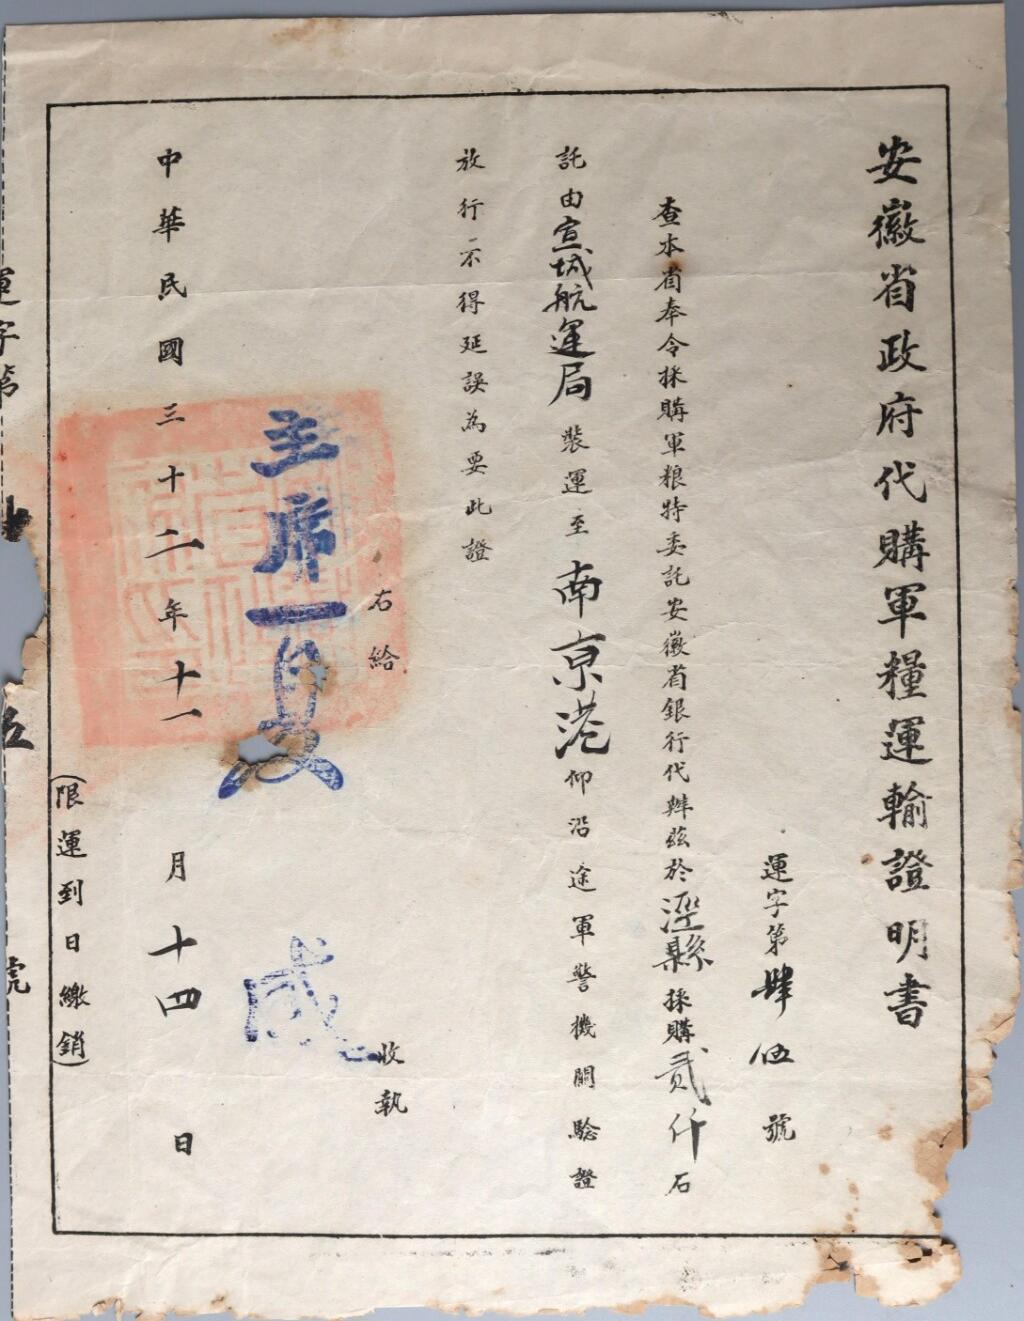 安徽省政府代購軍糧運輸證明書
運字第肆伍號
查本省奉令採購軍粮特委託安徽省銀行代辦茲於涇縣採購貳仟石
託由宣城航運局裝運至南京港仰沿途軍警機關驗證
放行示得延誤為要此證
右給
收執
主席
中華民國三十二年十一月十四日
(限運到日繳銷)
運字第
號